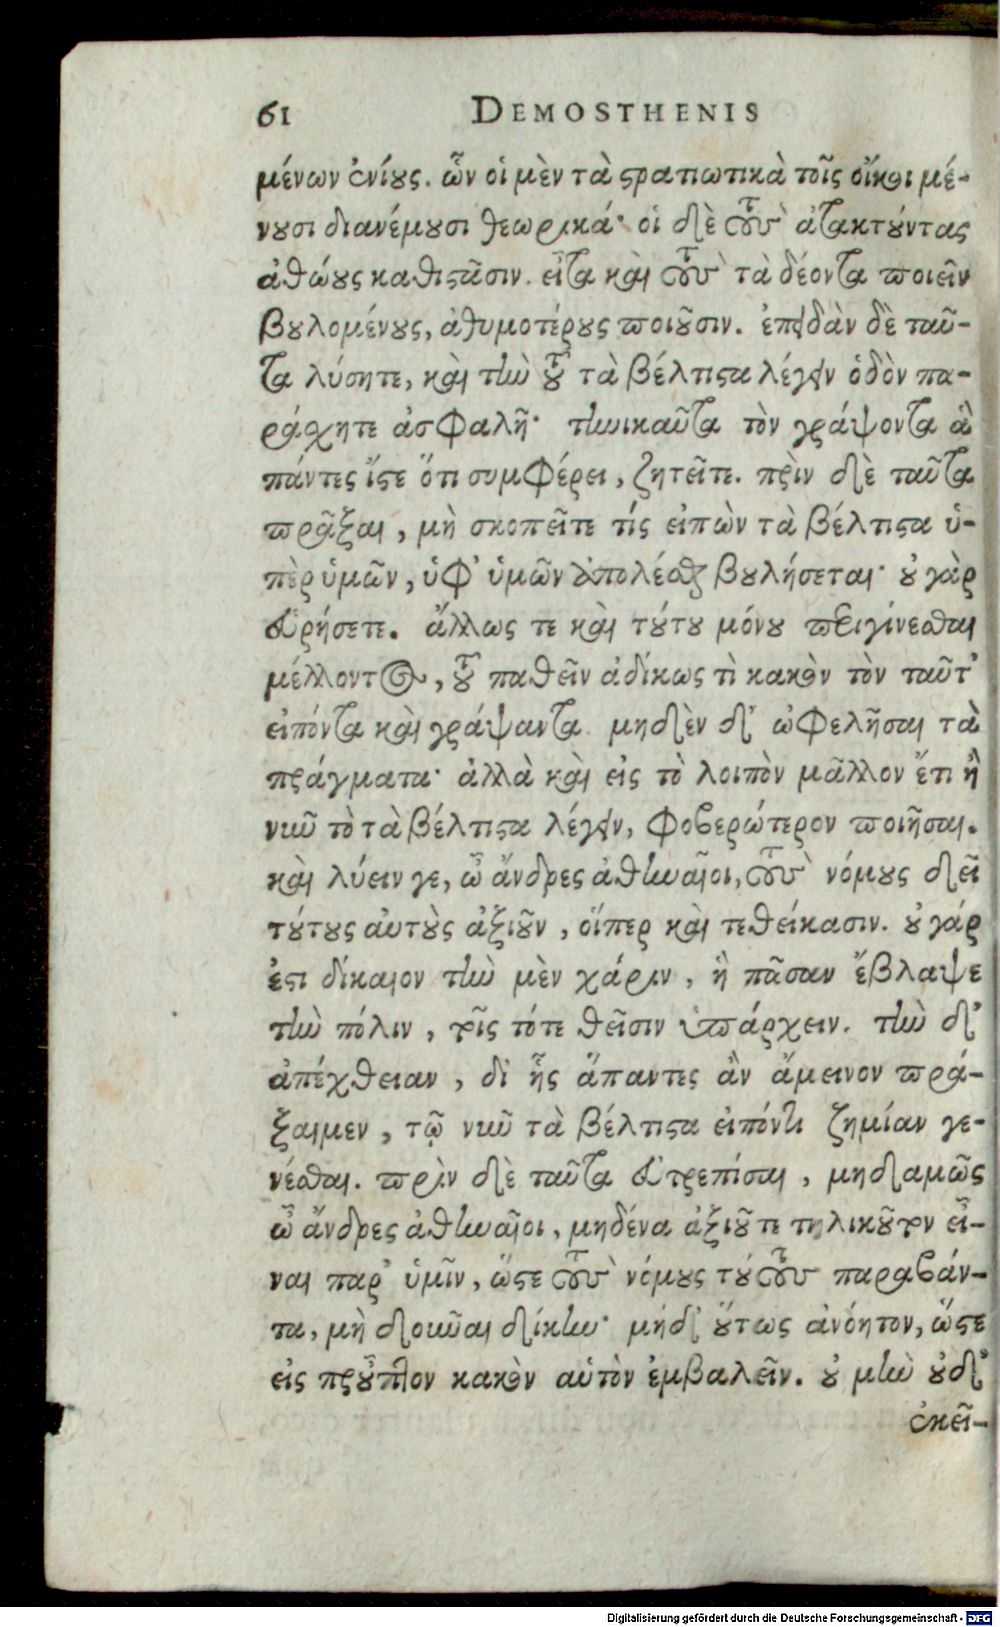 61 DEMOSTHENIS
μένων ἐνίους. ὧν οἱ μὲν τὰ στρατιωτικὰ τοῖς οἴκοι μέ-
νουσι διανέμουσι θεωρικά· οἱ δὲ τοὺς ἀτακτοῦντας
ἀθώους καθιστᾶσιν. εἶτα καὶ τοὺς τὰ δέοντα ποιεῖν
βουλομένους, ἀθυμοτέρους ποιοῦσιν. ἐπειδὰν δὲ ταῦ-
τα λύσητε, καὶ τὴν τοῦ τὰ βέλτιστα λέγειν ὁδὸν πα-
ράχητε ἀσφαλῆ· τηνικαῦτα τὸν γράψοντα ἃ
πάντες ἴστε ὅτι συμφέρει, ζητεῖτε. πρὶν δὲ ταῦτα
πρᾶξαι, μὴ σκοπεῖτε τίς εἰπὼν τὰ βέλτιστα ὑ-
πὲρ ὑμῶν, ὑφ' ὑμῶν ἀπολέσθαι βουλήσεται· οὐ γὰρ
εὑρήσετε. ἄλλως τε καὶ τούτου μόνου περιγίνεσθαι
μέλλοντος, τοῦ παθεῖν ἀδίκως τὶ κακὸν τὸν ταῦτ'
εἰπόντα καὶ γράψαντα μηδὲν δ' ὠφελῆσαι τὰ
πράγματα· ἀλλὰ καὶ εἰς τὸ λοιπὸν μᾶλλον ἔτι ἢ
νῦν τὸ τὰ βέλτιστα λέγειν, φοβερώτερον ποιῆσαι.
καὶ λύειν γε, ὦ ἄνδρες ἀθηναῖοι, τοὺς νόμους δεῖ
τούτους αὐτοὺς ἀξιοῦν, οἵπερ καὶ τεθείκασιν. οὐ γάρ
ἐστι δίκαιον τὴν μὲν χάριν, ἣ πᾶσαν ἔβλαψε
τὴν πόλιν, τοῖς τότε θεῖσιν ὑπάρχειν. τὴν δ'
ἀπέχθειαν, δι ἧς ἅπαντες ἂν ἄμεινον πρά-
ξαιμεν, τῷ νῦν τὰ βέλτιστα εἰπόντι ζημίαν γε-
νέσθαι. πρὶν δὲ ταῦτα εὐτρεπίσαι, μηδαμῶς
ὦ ἄνδρες ἀθηναῖοι, μηδένα ἀξιοῦτε τηλικοῦτον εἶ-
ναι παρ' ὑμῖν, ὥστε τοὺς νόμους τούτους παραβάν-
τα, μὴ δοῦναι δίκην· μηδ' οὕτως ἀνόητον, ὥστε
εἰς προὖπτον κακὸν αὑτὸν ἐμβαλεῖν. οὐ μὴν οὐδ'
ἐκεῖ-
Digitalisierung gefördert durch die Deutsche Forschungsgemeinschaft - DFG